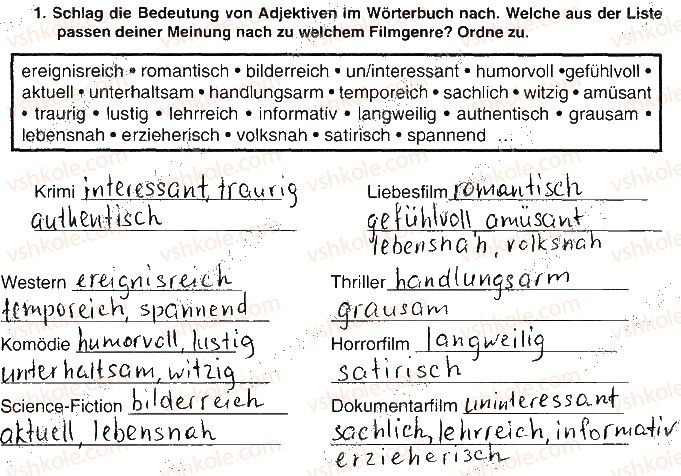 1. Schlag die Bedeutung von Adjektiven im Wörterbuch nach. Welche aus der Liste
passen deiner Meinung nach zu welchem Filmgenre? Ordne zu.
ereignisreich • romantisch • bilderreich • un/interessant • humorvoll •gefühlvoll •
aktuell • unterhaltsam • handlungsarm • temporeich • sachlich • witzig • amüsant
• traurig • lustig • lehrreich • informativ • langweilig • authentisch • grausam •
lebensnah • erzieherisch • volksnah • satirisch • spannend ...
Krimi interessant, traurig
authentisch
Liebesfilm romantisch
gefühlvoll, amüsant
lebensnah, volksnah
Western ereignisreich
temporeich, spannend
Thriller handlungsarm
grausam
Komödie humorvoll, lustig
unterhaltsam, witzig
Horrorfilm langweilig
satirisch
Science-Fiction bilderreich
aktuell, lebensnah
Dokumentarfilm uninteressant
sachlich, lehrreich, informativ
erzieherisch
vshkole.com